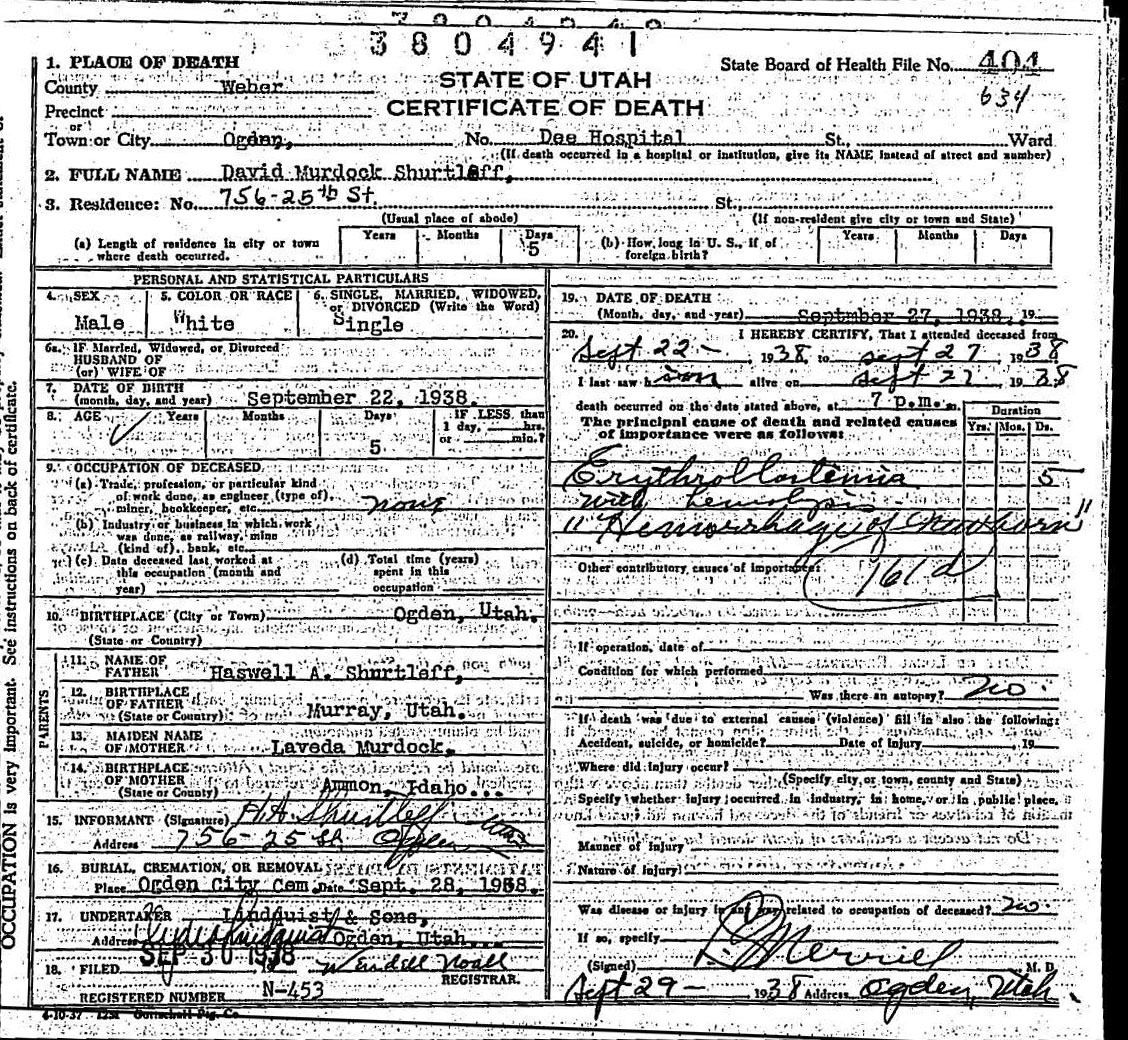 3804941
1. PLACE OF DEATH
State Board of Health File No. 404
County Weber
STATE OF UTAH
634
Precinct
CERTIFICATE OF DEATH
or
Town or City Ogden, No. Dee Hospital St., Ward
(If death occurred in a hospital or institution, give its NAME instead of street and number)
2. FULL NAME David Murdock Shurtleff,
3. Residence: No. 756-25th St. St.,
(Usual place of abode) (If non-resident give city or town and State)
(a) Length of residence in city or town where death occurred. Years Months Days 5
(b) How long in U. S., if of foreign birth? Years Months Days
PERSONAL AND STATISTICAL PARTICULARS
4. SEX Male
5. COLOR OR RACE White
6. SINGLE, MARRIED, WIDOWED, or DIVORCED (Write the Word) Single
6a. IF Married, Widowed, or Divorced
HUSBAND OF
(or) WIFE OF
7. DATE OF BIRTH
(month, day, and year) September 22, 1938.
8. AGE Years Months Days 5 IF LESS than
1 day, hrs.
or min.?
9. OCCUPATION OF DECEASED
(a) Trade, profession, or particular kind
of work done, as engineer (type of),
miner, bookkeeper, etc. none
(b) Industry or business in which work
was done, as railway, mine
(kind of), bank, etc.
(c) Date deceased last worked at
this occupation (month and
year)
(d) Total time (years)
spent in this
occupation
10. BIRTHPLACE (City or Town) Ogden, Utah.
(State or Country)
PARENTS
11. NAME OF
FATHER Haswell A. Shurtleff,
12. BIRTHPLACE
OF FATHER
(State or Country) Murray, Utah.
13. MAIDEN NAME
OF MOTHER Laveda Murdock.
14. BIRTHPLACE
OF MOTHER
(State or Country) Ammon, Idaho...
15. INFORMANT (Signature) H.A. Shurtleff
Address 756-25 St. Ogden
16. BURIAL, CREMATION, OR REMOVAL
Place Ogden City Cem. Date Sept. 28, 1938.
17. UNDERTAKER Lindquist & Sons,
Address Ogden, Utah...
SEP 30 1938
18. FILED Wendell Noall
REGISTRAR.
REGISTERED NUMBER N-453
4-10-37
19. DATE OF DEATH
(Month, day, and year) Septmber 27, 1938. 19
20. I HEREBY CERTIFY, That I attended deceased from
Sept 22- 1938 to Sept 27 1938
I last saw h alive on Sept 27 1938
death occurred on the date stated above, at 7 p.m. m.
The principal cause of death and related causes
of importance were as follows:
Duration
Yrs. Mos. Ds.
5
with hemolysis
"Hemorrhage of Newborn"
Other contributory causes of importance:
161d
If operation, date of
Condition for which performed
Was there an autopsy? no.
If death was due to external causes (violence) fill in also the following:
Accident, suicide, or homicide? Date of Injury , 19
Where did injury occur?
(Specify city, or town, county and State)
Specify whether injury occurred in industry, in home, or in public place.
Manner of Injury
Nature of Injury
Was disease or injury in any way related to occupation of deceased? no.
If so, specify
(Signed) Merrill M. D.
Sept 29- 1938 Address Ogden, Utah.
OCCUPATION is very important. See instructions on back of certificate.